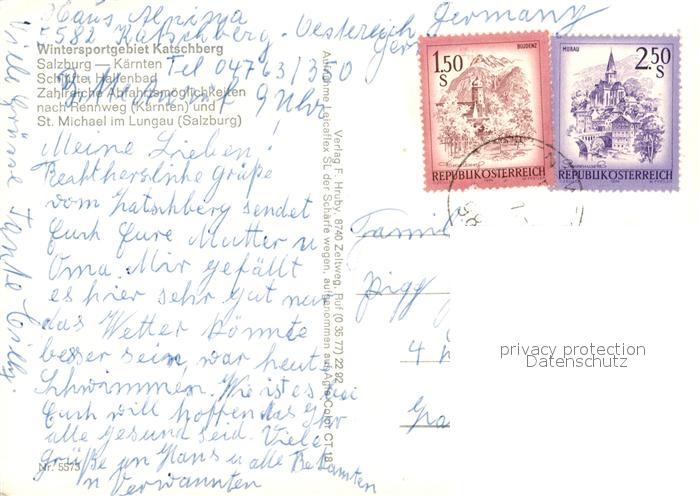 Haus Alpina
5582 Katschberg - Oestereich Germany
Wintersportgebiet Katschberg
Salzburg — Kärnten
Schilifte, Hallenbad
Tel 04763/350
Zahlreiche Abfahrtsmöglichkeiten
nach Rennweg (Kärnten) und
9 Uhr
St. Michael im Lungau (Salzburg)
Meine Lieben!
Recht herzliche Grüße
vom Katschberg sendet
Euch Eure Mutter u
Oma. Mir gefällt
es hier sehr gut nur
das Wetter könnte
besser sein, war heute
schwimmen. Wie ist es bei
Euch will hoffen das Ihr
alle gesund seid. Viele
grüße an Hans u alle Bekannten
n Verwannten
Nr. 5573
Viele Grüsse Tante Cilly
Verlag F. Hruby, 8740 Zeltweg, Ruf (0 35 77) 22 92
Aufnahme Leicaflex SL der Schärfe wegen, aufgenommen auf Agfa-Color CT 18
1.50
S
BLUDENZ
REPUBLIK ÖSTERREICH
2.50
S
MURAU
REPUBLIK ÖSTERREICH
Famil
Pigg
4
privacy protection
Datenschutz